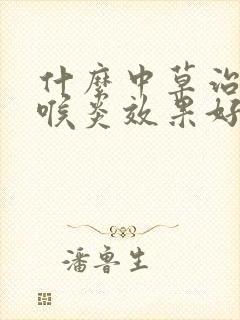 什麼中草治
喉炎效果好
潘魯生